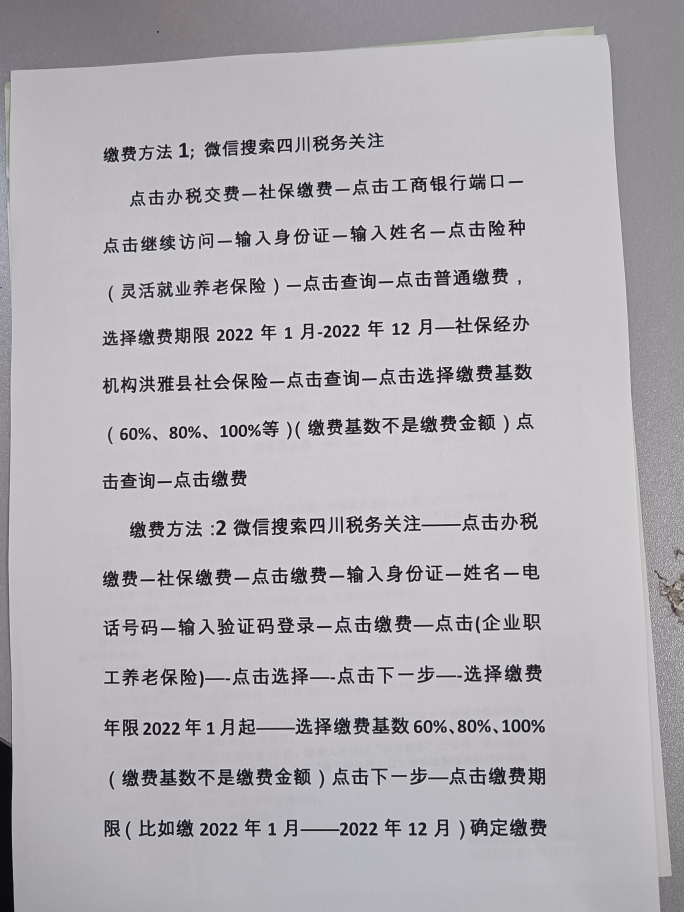 缴费方法 1; 微信搜索四川税务关注
点击办税交费—社保缴费—点击工商银行端口—
点击继续访问—输入身份证—输入姓名—点击险种
（灵活就业养老保险）—点击查询—点击普通缴费，
选择缴费期限 2022 年 1 月-2022 年 12 月—社保经办
机构洪雅县社会保险—点击查询—点击选择缴费基数
（60%、80%、100%等）（缴费基数不是缴费金额）点
击查询—点击缴费
缴费方法 :2 微信搜索四川税务关注——点击办税
缴费—社保缴费—点击缴费—输入身份证—姓名—电
话号码—输入验证码登录—点击缴费—点击(企业职
工养老保险)—-点击选择—-点击下一步—-选择缴费
年限 2022 年 1 月起——选择缴费基数 60%、80%、100%
（缴费基数不是缴费金额）点击下一步—点击缴费期
限（比如缴 2022 年 1 月——2022 年 12 月）确定缴费